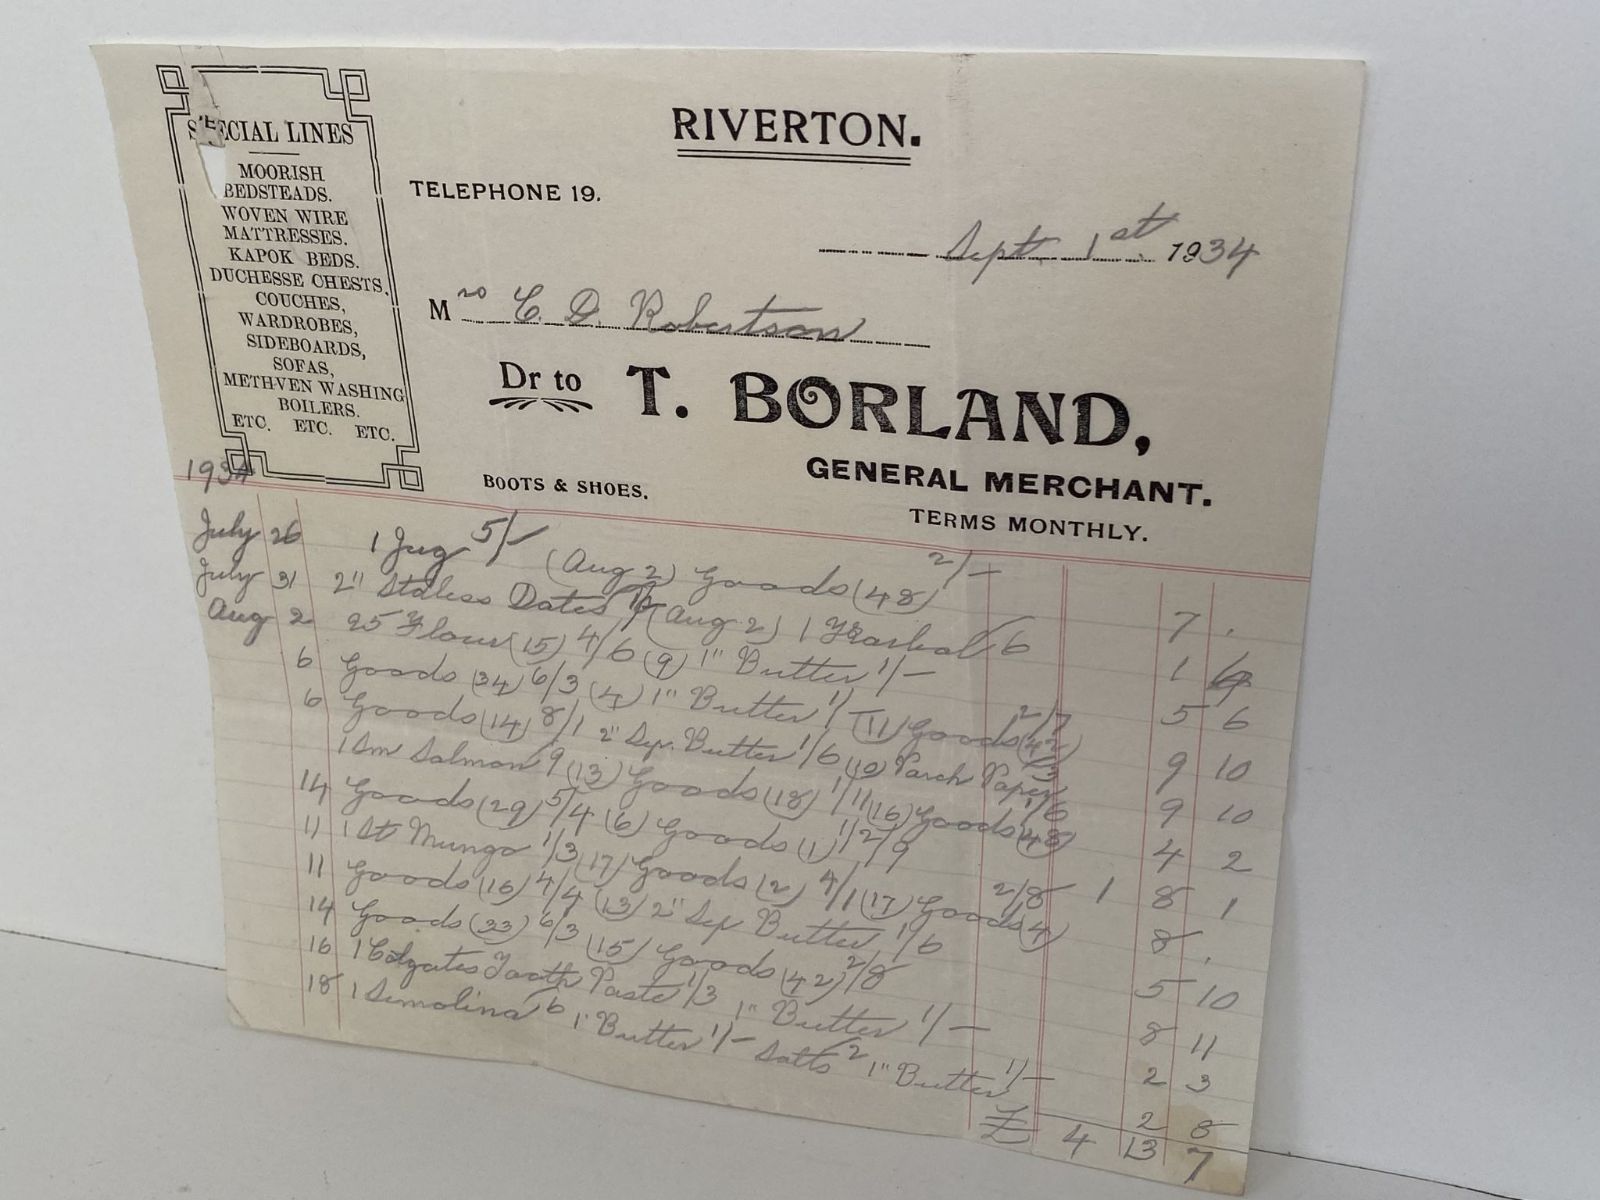 SPECIAL LINES
MOORISH
BEDSTEADS.
WOVEN WIRE
MATTRESSES.
KAPOK BEDS.
DUCHESSE CHESTS,
COUCHES,
WARDROBES,
SIDEBOARDS,
SOFAS,
METHVEN WASHING
BOILERS.
ETC. ETC. ETC.
RIVERTON.
TELEPHONE 19.
Sept. 1st. 1934
Mrs C. D. Robertson
Dr to T. BORLAND,
GENERAL MERCHANT.
BOOTS & SHOES.
TERMS MONTHLY.
1934
July 26 1 Jug 5/- (Aug 2) Goods (48) 2/- 7 .
July 31 2" Dates (Aug 2) 1 6 1 6
Aug 2 25 Flour (15) 4/6 (9) 1" Butter 1/- 5 6
6 Goods (34) 6/3 (4) 1" Butter 1/ (11) Goods (42) 2/7 9 10
6 Goods (14) 8/1 2" Sep. Butter 1/6 (10) Parch Paper /3 9 10
1 Sm Salmon 9 (13) Goods (18) 1/11 (16) Goods (48) 1/6 4 2
14 Goods (29) 5/4 (6) Goods (1) 1/2/9 1 8 1
11 1 St Mungo 1/3 (17) Goods (2) 4/1 (17) Goods (4) 2/8 8 .
11 Goods (16) 4/4 (13) 2" Sep Butter 1/6 5 10
14 Goods (33) 6/3 (15) Goods (42) 2/8 8 11
16 1 Colgates Tooth Paste 1/3 1" Butter 1/- 2 3
18 1 Semolina 6 1" Butter 1/- Salts 2 1" Butter 1/- 2 8
£ 4 13 7